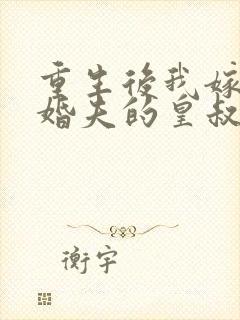 重生後我嫁
婚夫的皇叔
衡宇